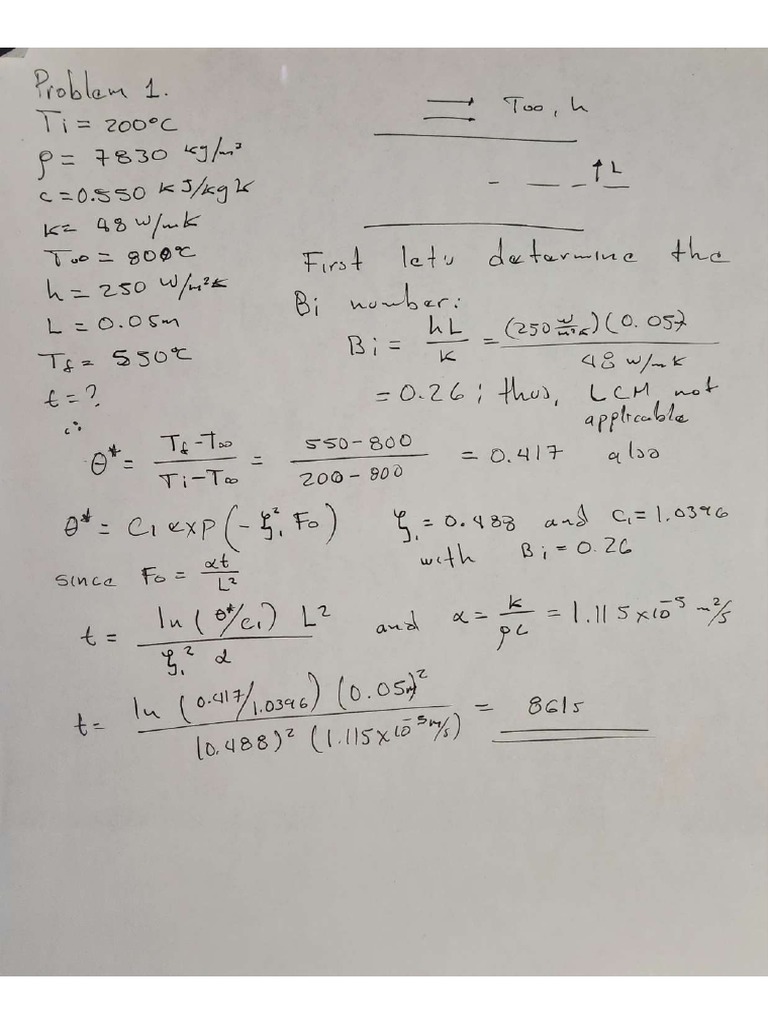 Problem 1.
Ti = 200°C
ρ = 7830 kg/m³
c = 0.550 kJ/kgK
k = 48 W/mK
T∞ = 800°C
h = 250 W/m²K
L = 0.05m
Tf = 550°C
t = ?
T∞, h
↑L
First lets determine the
Bi number:
Bi = hL/k = (250 W/m²K)(0.05)/48 W/mK
= 0.26; thus, LCM not
applicable
∴
θ* = (Tf-T∞)/(Ti-T∞) = (550-800)/(200-800) = 0.417 also
θ* = C1 exp(-ξ1² Fo) ξ1 = 0.488 and C1 = 1.0396
with Bi = 0.26
since Fo = αt/L²
t = ln(θ*/C1) L²/ξ1² α and α = k/ρc = 1.115x10⁻⁵ m²/s
t = ln(0.417/1.0396)(0.05m)²/(0.488)²(1.115x10⁻⁵m/s) = 861s